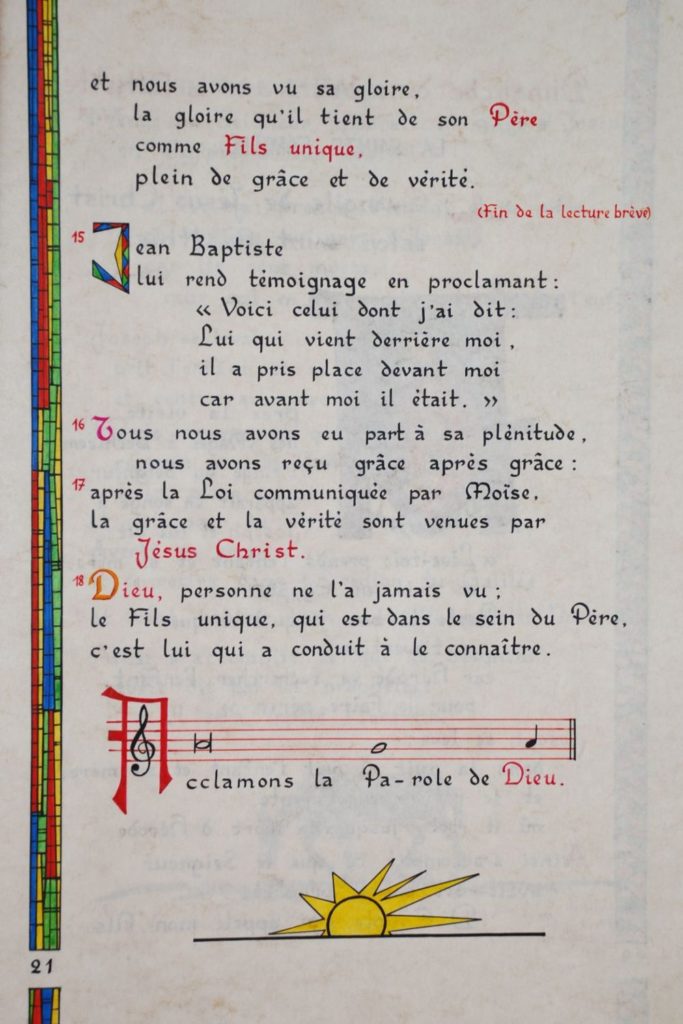 et nous avons vu sa gloire,
la gloire qu'il tient de son Père
comme Fils unique,
plein de grâce et de vérité.
(Fin de la lecture brève)
15 Jean Baptiste
lui rend témoignage en proclamant :
« Voici celui dont j'ai dit :
Lui qui vient derrière moi,
il a pris place devant moi
car avant moi il était. »
16 Tous nous avons eu part à sa plénitude,
nous avons reçu grâce après grâce :
17 après la Loi communiquée par Moïse,
la grâce et la vérité sont venues par
Jésus Christ.
18 Dieu, personne ne l'a jamais vu ;
le Fils unique, qui est dans le sein du Père,
c'est lui qui a conduit à le connaître.
Acclamons la Pa-role de Dieu.
21